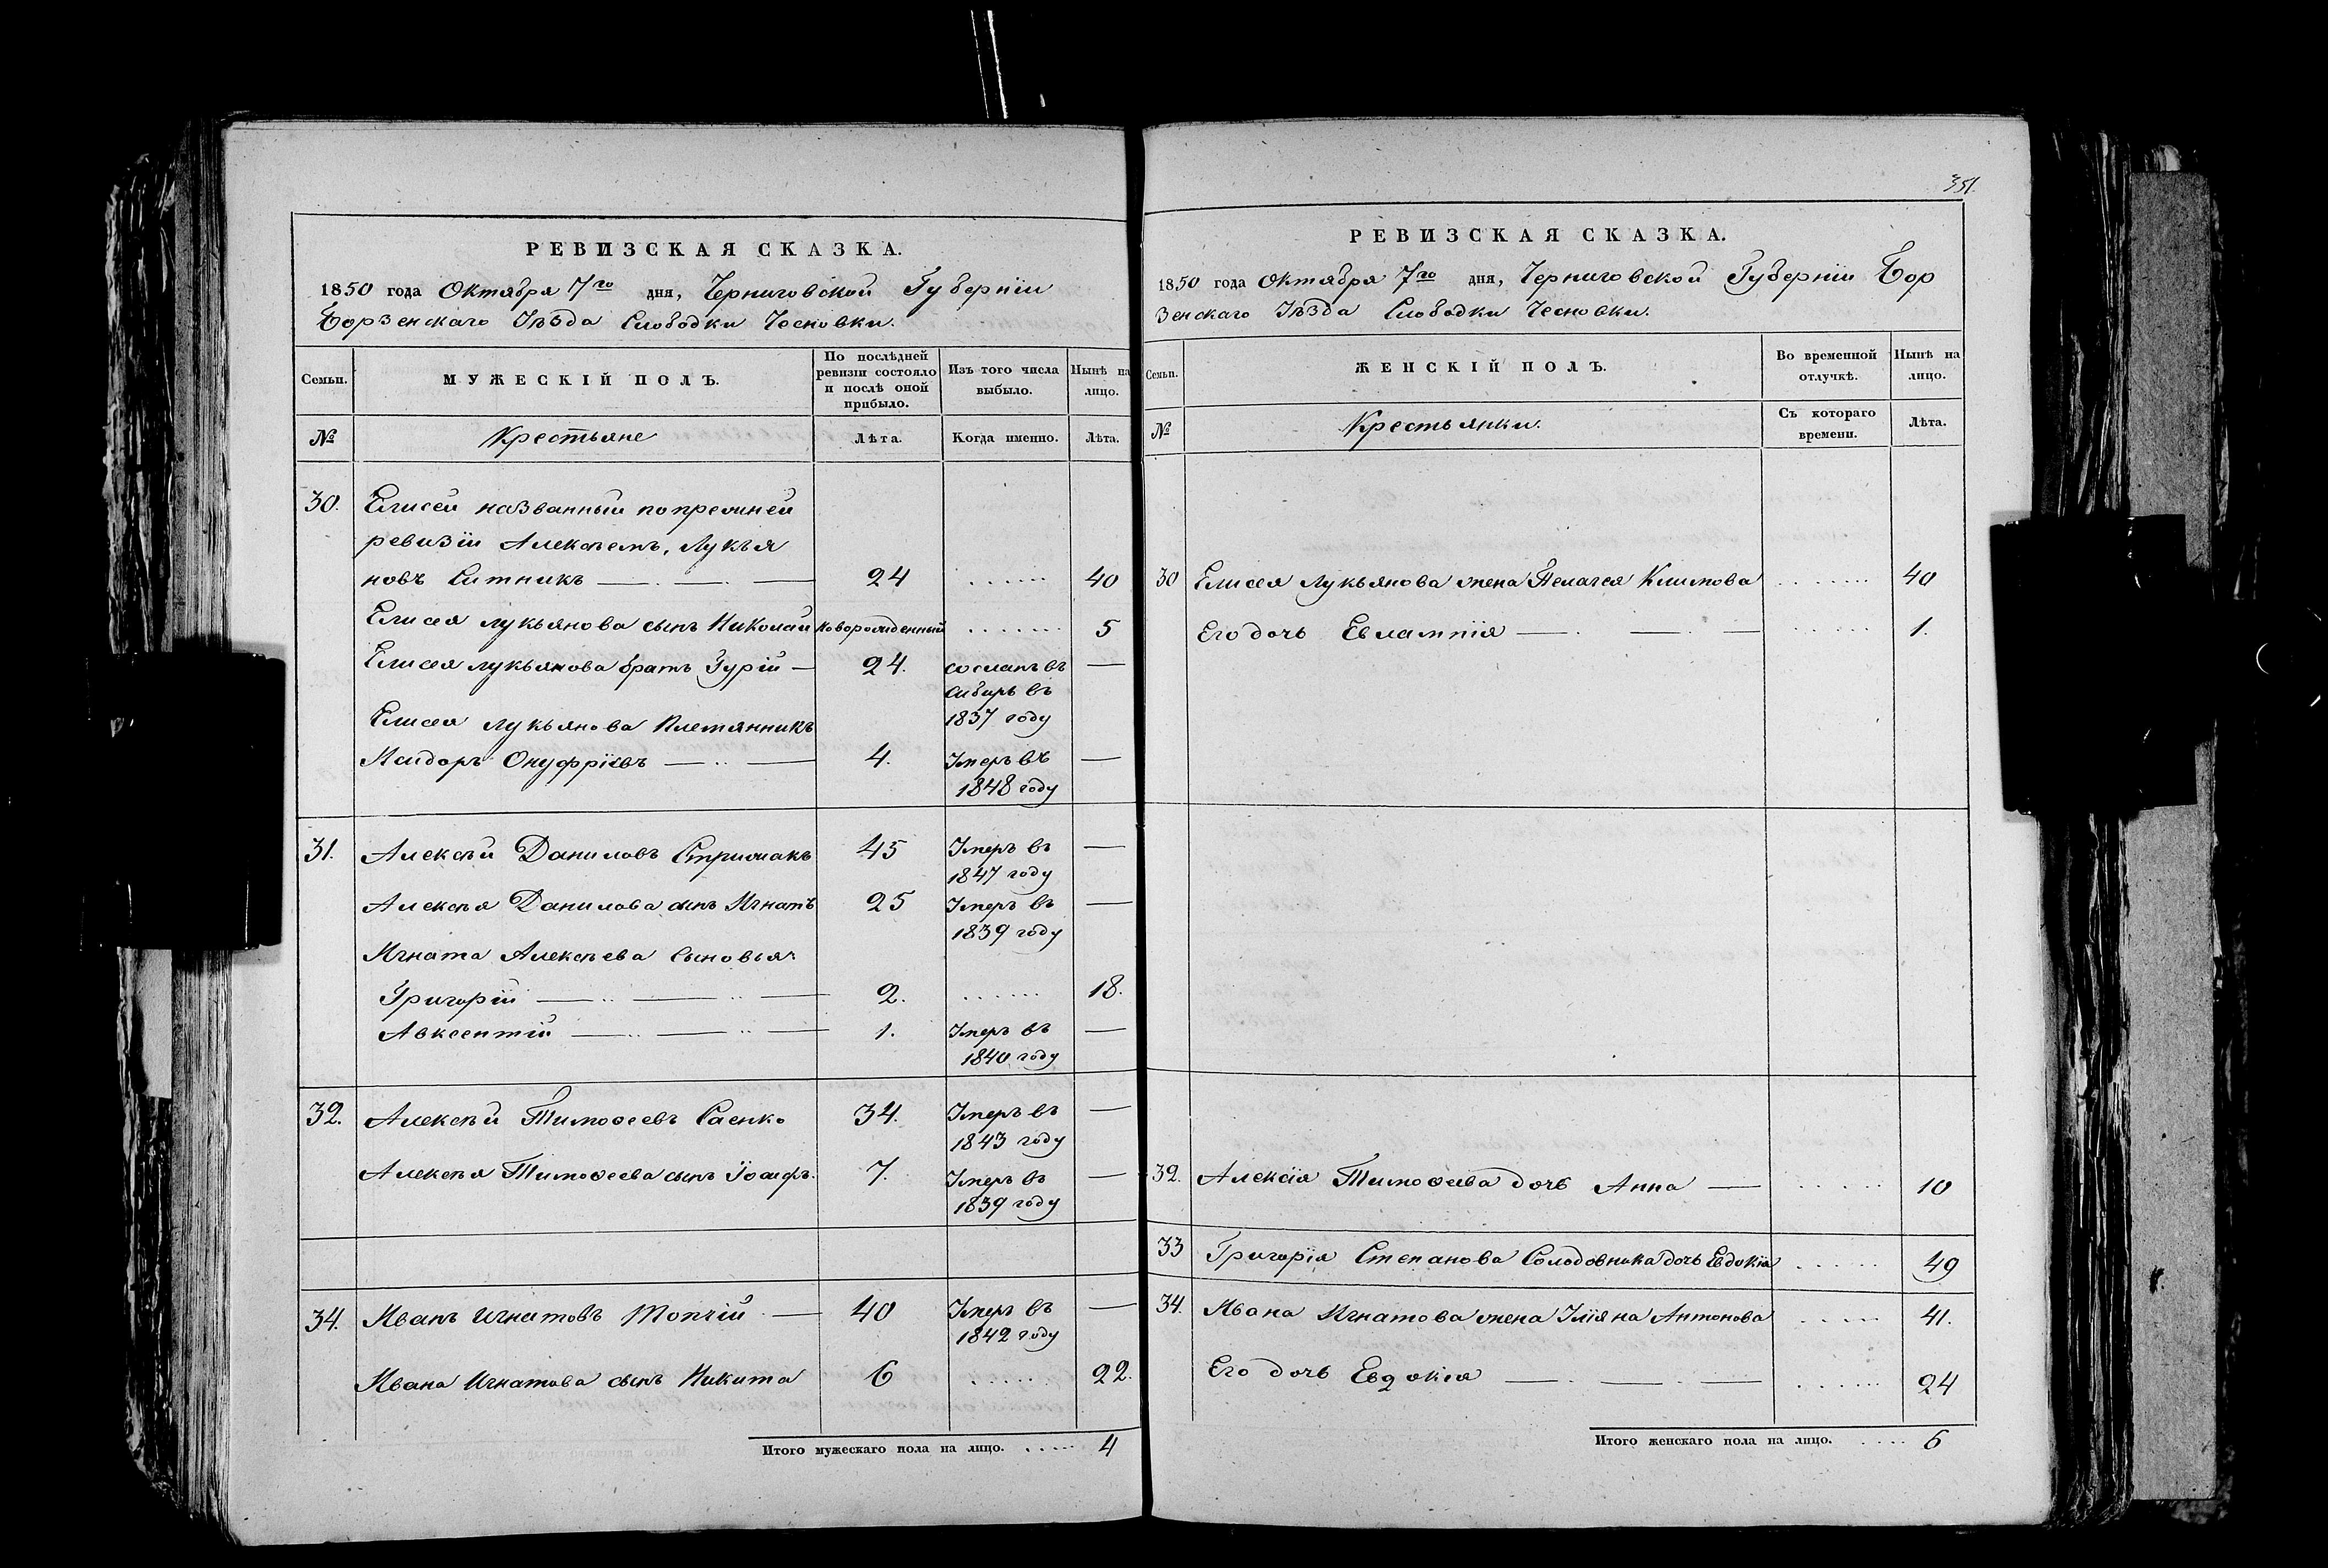 РЕВИЗСКАЯ СКАЗКА.
1850 года Октября 7го дня, Черниговской Губерніи
Борзенскаго Уѣзда Слободки Чесновки.
Семьи.
МУЖЕСКІЙ ПОЛЪ.
По послѣдней ревизіи состояло и послѣ оной прибыло.
Изъ того числа выбыло.
Нынѣ на лицо.
№
Крестьяне
Лѣта.
Когда именно.
Лѣта.
30. Елисей названный по прежней
ревизіи Алексѣемъ, Лукья
новъ Ситникъ 24 40
Елисея Лукьянова сынъ Николай новорожденный 5
Елисея Лукьянова братъ Гурій 24. сосланъ въ
сибирь въ
1837 году
Елисея Лукьянова Племянникъ
Исидоръ Онуфріевъ 4. Умеръ въ
1848 году
31. Алексѣй Даниловъ Стрижакъ 45 Умеръ въ
1847 году
Алексѣя Данилова сынъ Игнатъ 25 Умеръ въ
1839 году
Игната Алексѣева сыновья:
Григорій 2. 18.
Авксентій 1. Умеръ въ
1840 году
32. Алексѣй Тимофеевъ Саенко 34. Умеръ въ
1843 году
Алексѣя Тимофеева сынъ Іосифъ. 7. Умеръ въ
1839 году
34. Иванъ Игнатовъ Топчій 40 Умеръ въ
1842 году
Ивана Игнатова сынъ Никита 6 22.
Итого мужескаго пола на лицо. 4
351.
РЕВИЗСКАЯ СКАЗКА.
1850 года Октября 7го дня, Черниговской Губерніи Бор
зенскаго Уѣзда Слободки Чесновки.
Семьи.
ЖЕНСКІЙ ПОЛЪ.
Во временной отлучкѣ.
Нынѣ на лицо.
№
Крестьянки.
Съ котораго времени.
Лѣта.
30 Елисея Лукьянова жена Пелагея Климова 40
Его дочь Евлампія 1.
32. Алексія Тимофеева дочь Анна 10
33 Григорія Степанова Солодовника дочь Евдокія 49
34. Ивана Игнатова жена Уліяна Антонова 41.
Его дочь Евдокія 24
Итого женскаго пола на лицо. 6